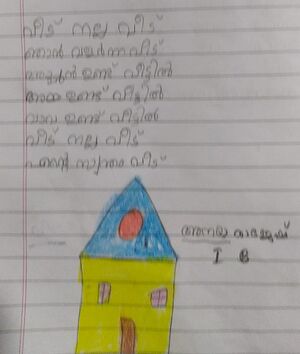 വീട് നല്ല വീട്
ഞാൻ വളർന്ന വീട്
അച്ഛൻ ഉണ്ട് വീട്ടിൽ
അമ്മ ഉണ്ട് വീട്ടിൽ
വാവ ഉണ്ട് വീട്ടിൽ
വീട് നല്ല വീട്
എന്റെ സ്വന്തം വീട്
I B